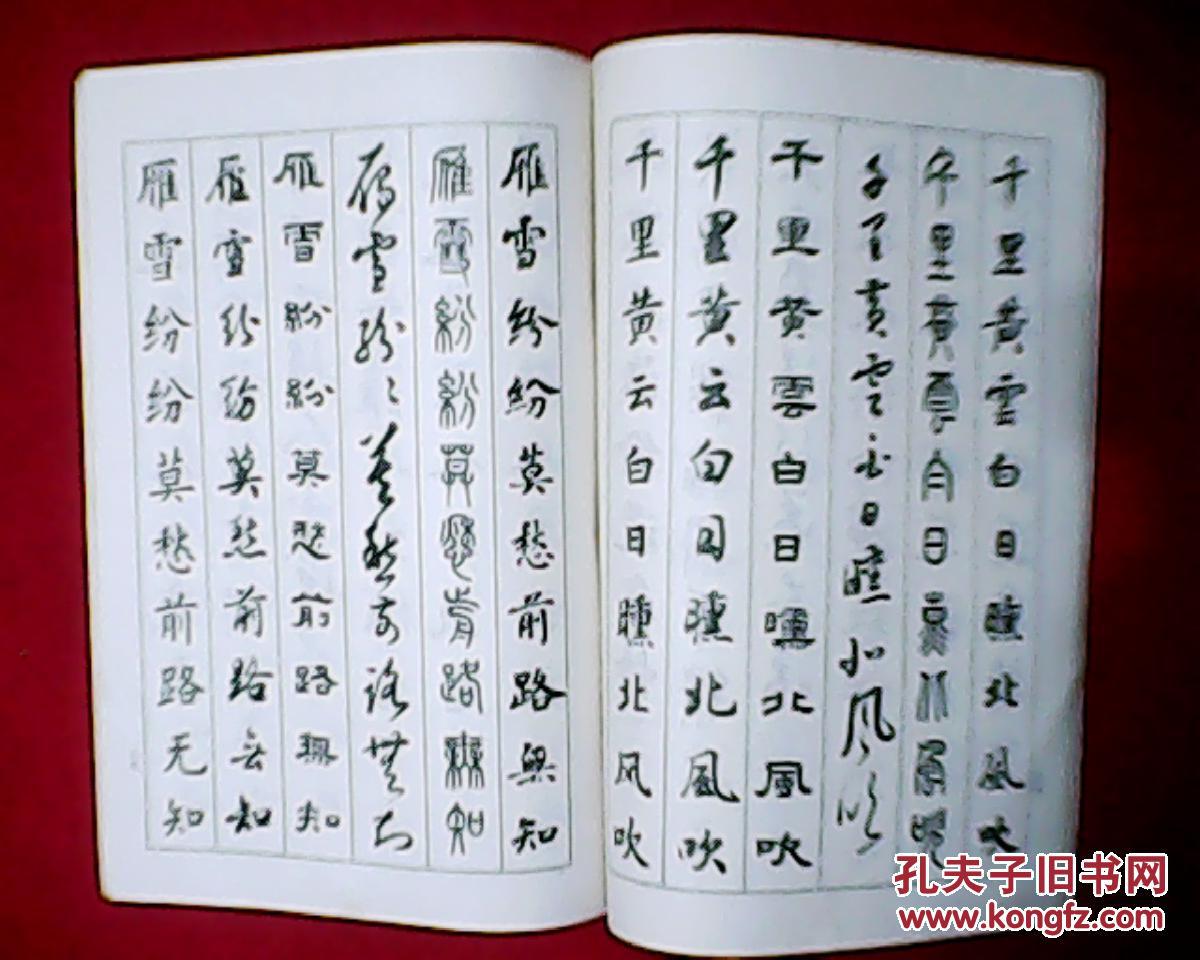 千里黄雲白日曛北風吹
千里黄雲白日曛北風吹
千里黄雲白日曛北风吹
千里黄雲白日曛北風吹
千里黄云白日曛北風吹
千里黄云白日曛北风吹
雁雪紛紛莫愁前路無知
雁雪紛紛莫愁前路無知
雁雪紛〻莫愁前路無知
雁雪紛紛莫愁前路無知
雁雪纷纷莫愁前路无知
雁雪纷纷莫愁前路无知
孔夫子旧书网
www.kongfz.com